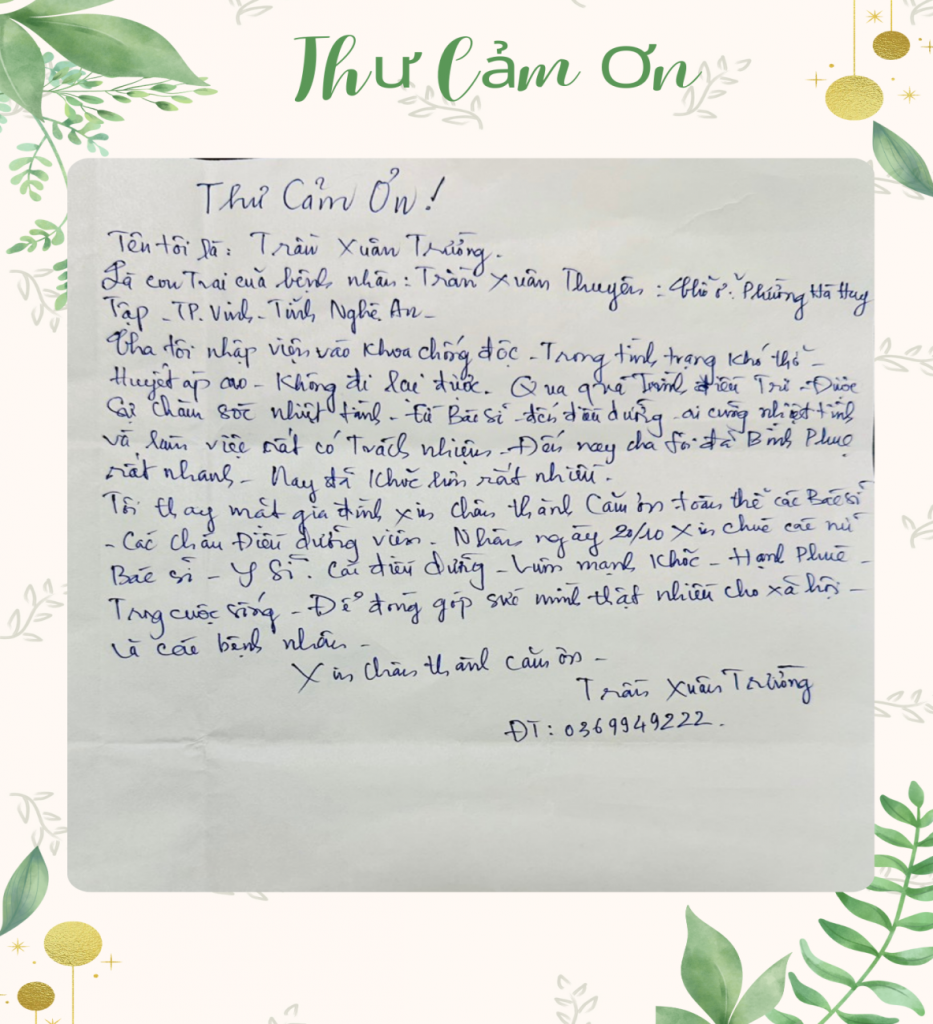 Thư Cảm Ơn
Thư Cảm Ơn!
Tên tôi là: Trần Xuân Trưởng.
Là con Trai của bệnh nhân: Trần Xuân Thuyên: Chỗ ở: Phường Hà Huy
Tập - TP. Vinh - Tỉnh Nghệ An -
Cha tôi nhập viện vào Khoa chống độc - Trong tình trạng Khó thở -
Huyết áp cao - Không đi lại được. Qua quá Trình điều Trị - Được
Sự chăm sóc nhiệt tình - từ Bác sĩ - đến điều dưỡng - ai cũng nhiệt tình
và làm việc rất có Trách nhiệm - Đến nay cha tôi đã Bình Phục
rất nhanh - Nay đã Khỏe hơn rất nhiều.
Tôi thay mặt gia đình xin chân thành Cảm ơn toàn thể các Bác sĩ
- Các cháu Điều dưỡng viên. Nhân ngày 20/10 Xin chúc các nữ
Bác sĩ - Y Sĩ. Các điều dưỡng - Luôn mạnh Khỏe - Hạnh Phúc -
Trong cuộc sống - Để đóng góp sức mình thật nhiều cho xã hội -
và các bệnh nhân -
Xin chân thành cảm ơn -
Trần Xuân Trưởng
ĐT: 0369949222.